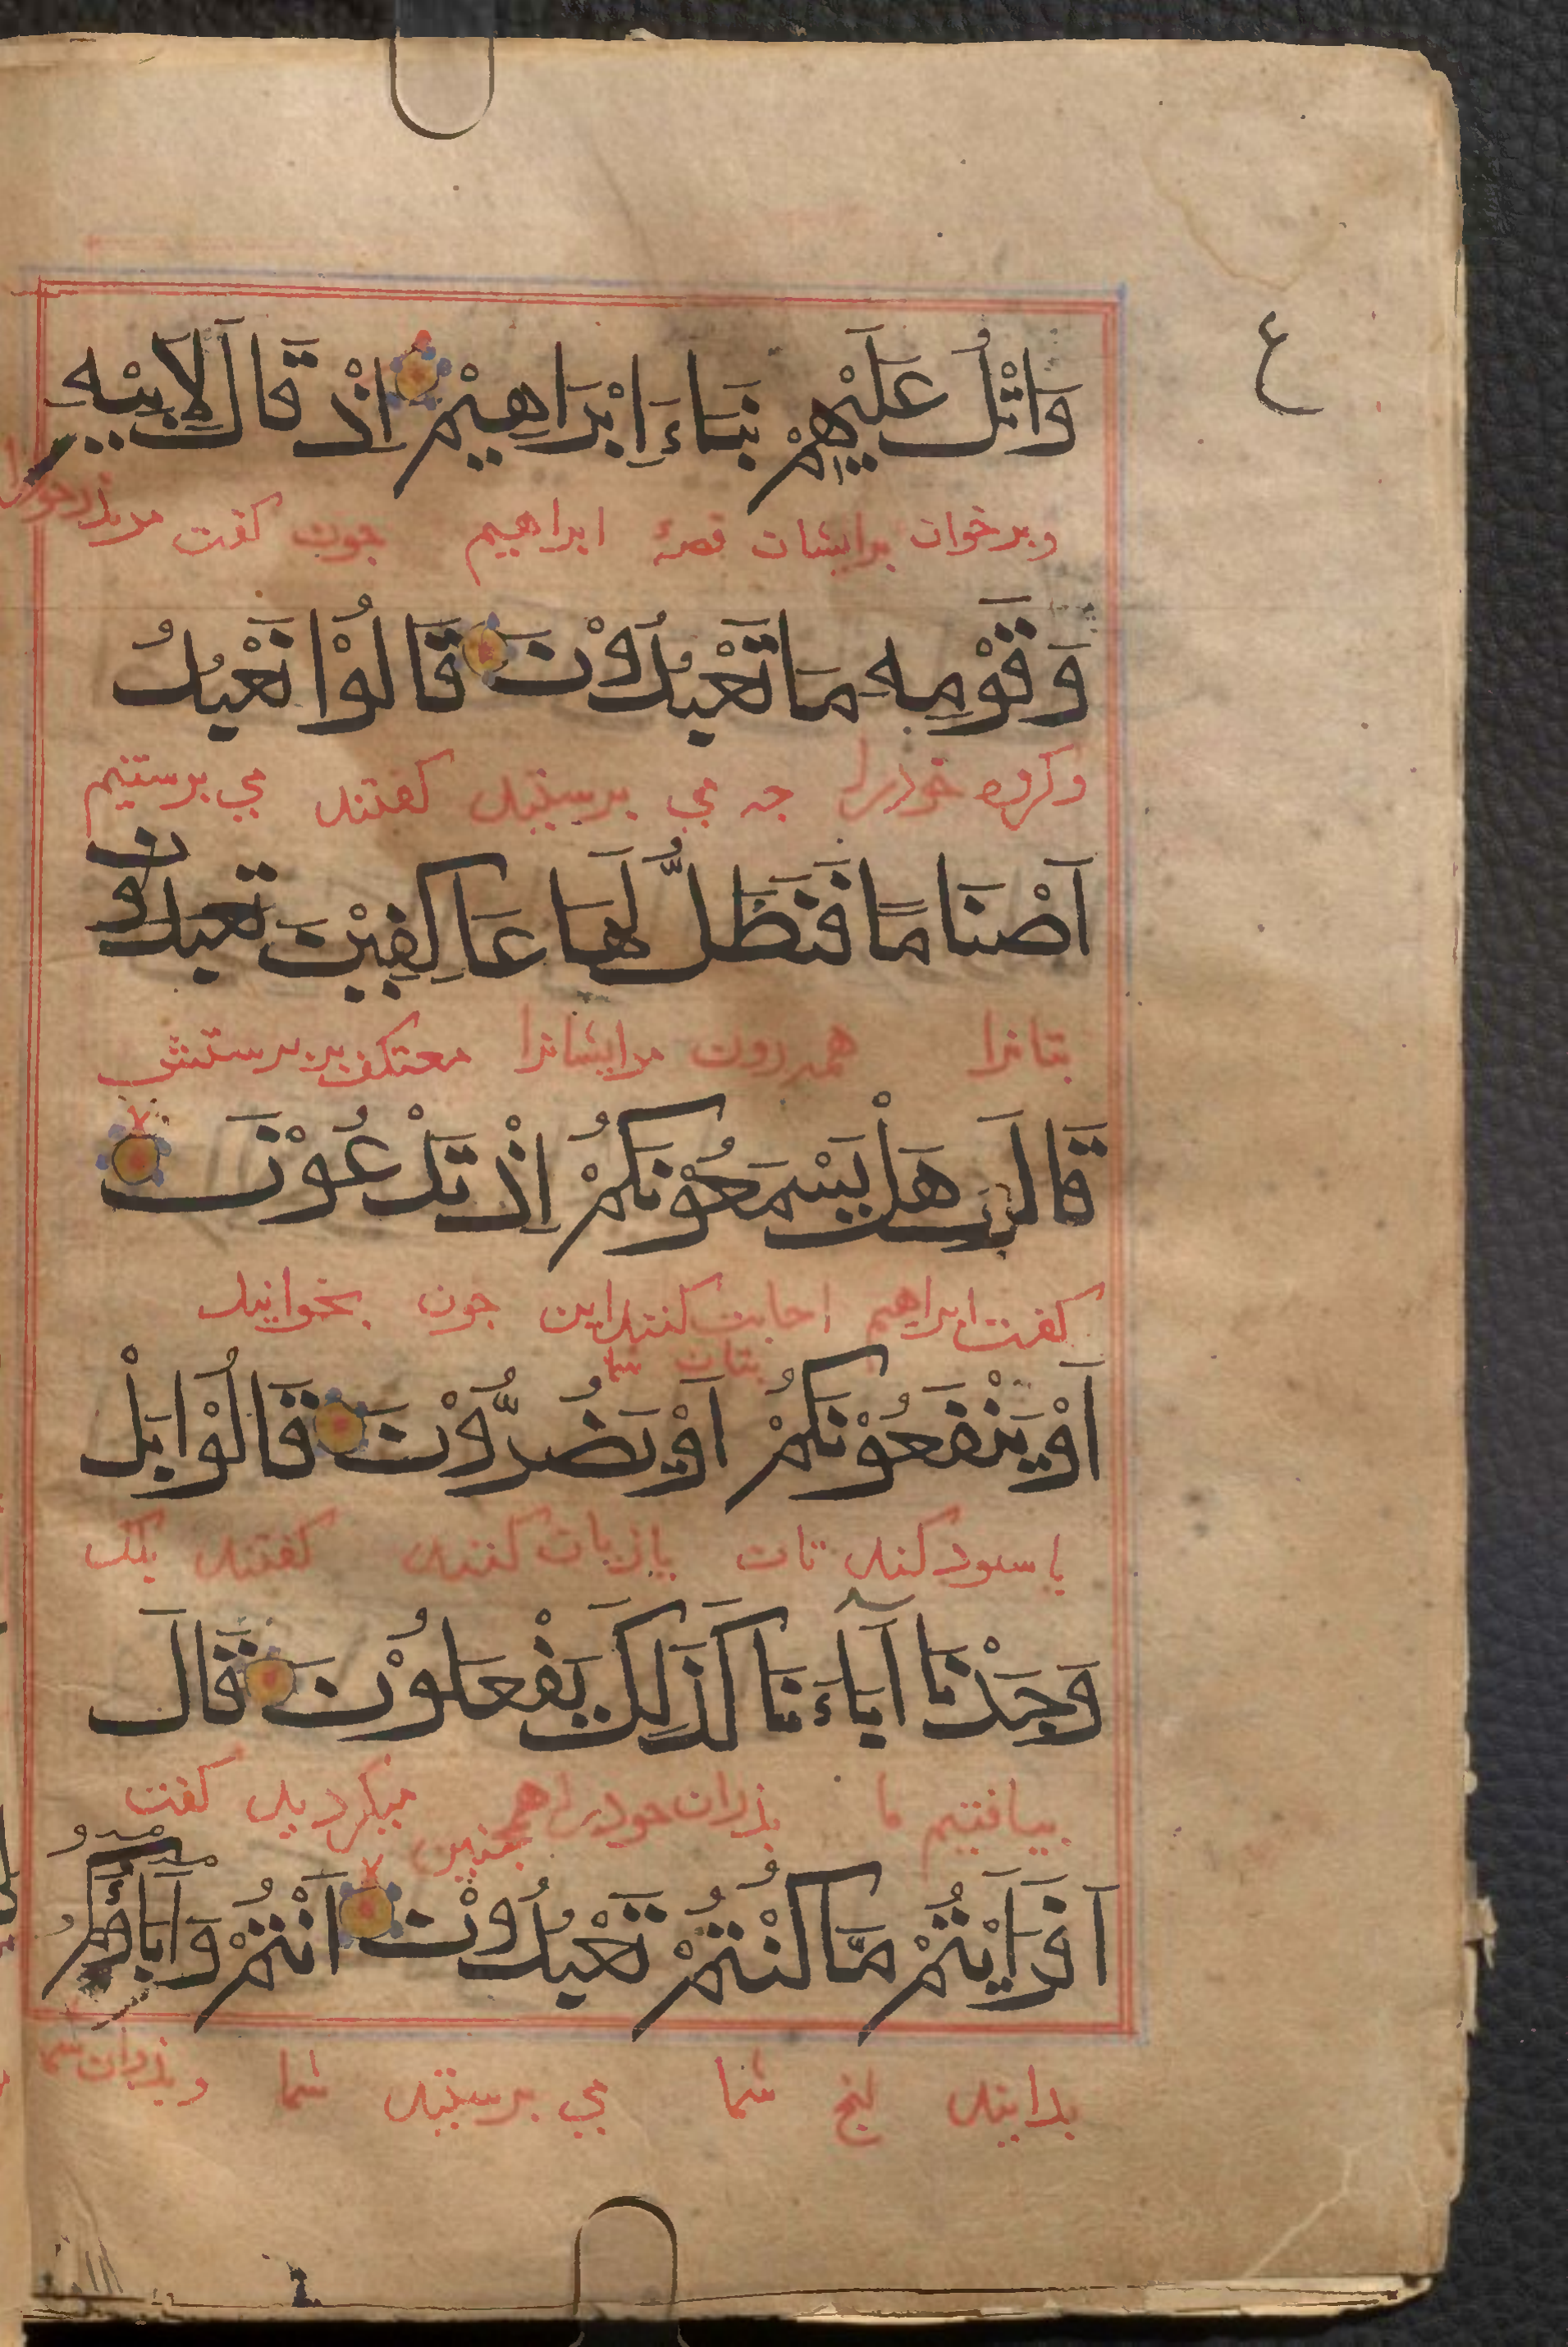 ع
وَاتْلُ عَلَيْهِمْ نَبَاءَ اِبْرَاهِيْمَ اِذْ قَالَ لِاَبِيْهِ
وبرخوان برایشان قصهٔ ابراهیم جون کفت مربذرخودرا
وَقَوْمِهِ مَا تَعْبُدُوْنَ قَالُوْا نَعْبُدُ
وکروه خوذرا جه می برستیذ کفتند می برستیم
اَصْنَامًا فَنَظَلُّ لَهَا عَاكِفِيْنَ تعبدون
بتانرا همه روز مرایشانرا معتکف بر برستش
قَالَ هَلْ يَسْمَعُوْنَكُمْ اِذْ تَدْعُوْنَ
کفت ابراهیم اجابت کنند این جون بخوانید
بتان شما
اَوْ يَنْفَعُوْنَكُمْ اَوْ يَضُرُّوْنَ قَالُوْا بَلْ
یا سود کنند تان یا زیان کنند کفتند بلک
وَجَدْنَا آبَاءَنَا كَذَلِكَ يَفْعَلُوْنَ قَالَ
بیافتیم ما بذران خودرا هم میکردند کفت
جنین
اَفَرَاَيْتُمْ مَّا كُنْتُمْ تَعْبُدُوْنَ اَنْتُمْ وَآبَاؤُكُمُ
بدانید انج شما می برستیذ شما وبذران شما